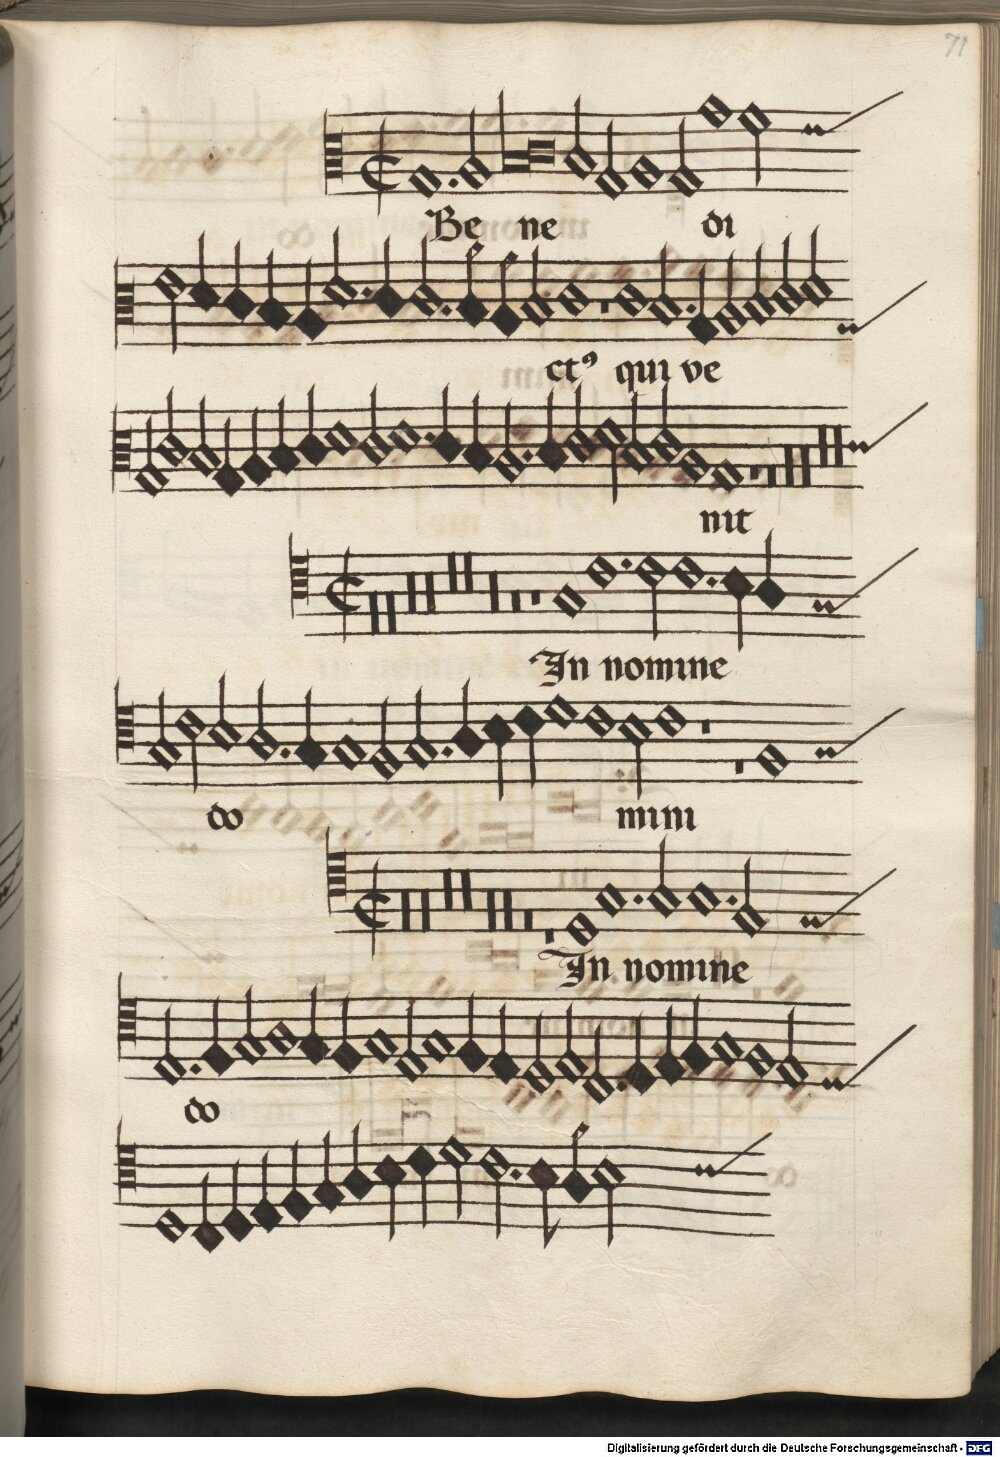 71
Be ne di
ct⁹ qui ve
nit
In nomine
do mini
In nomine
do
Digitalisierung gefördert durch die Deutsche Forschungsgemeinschaft - DFG